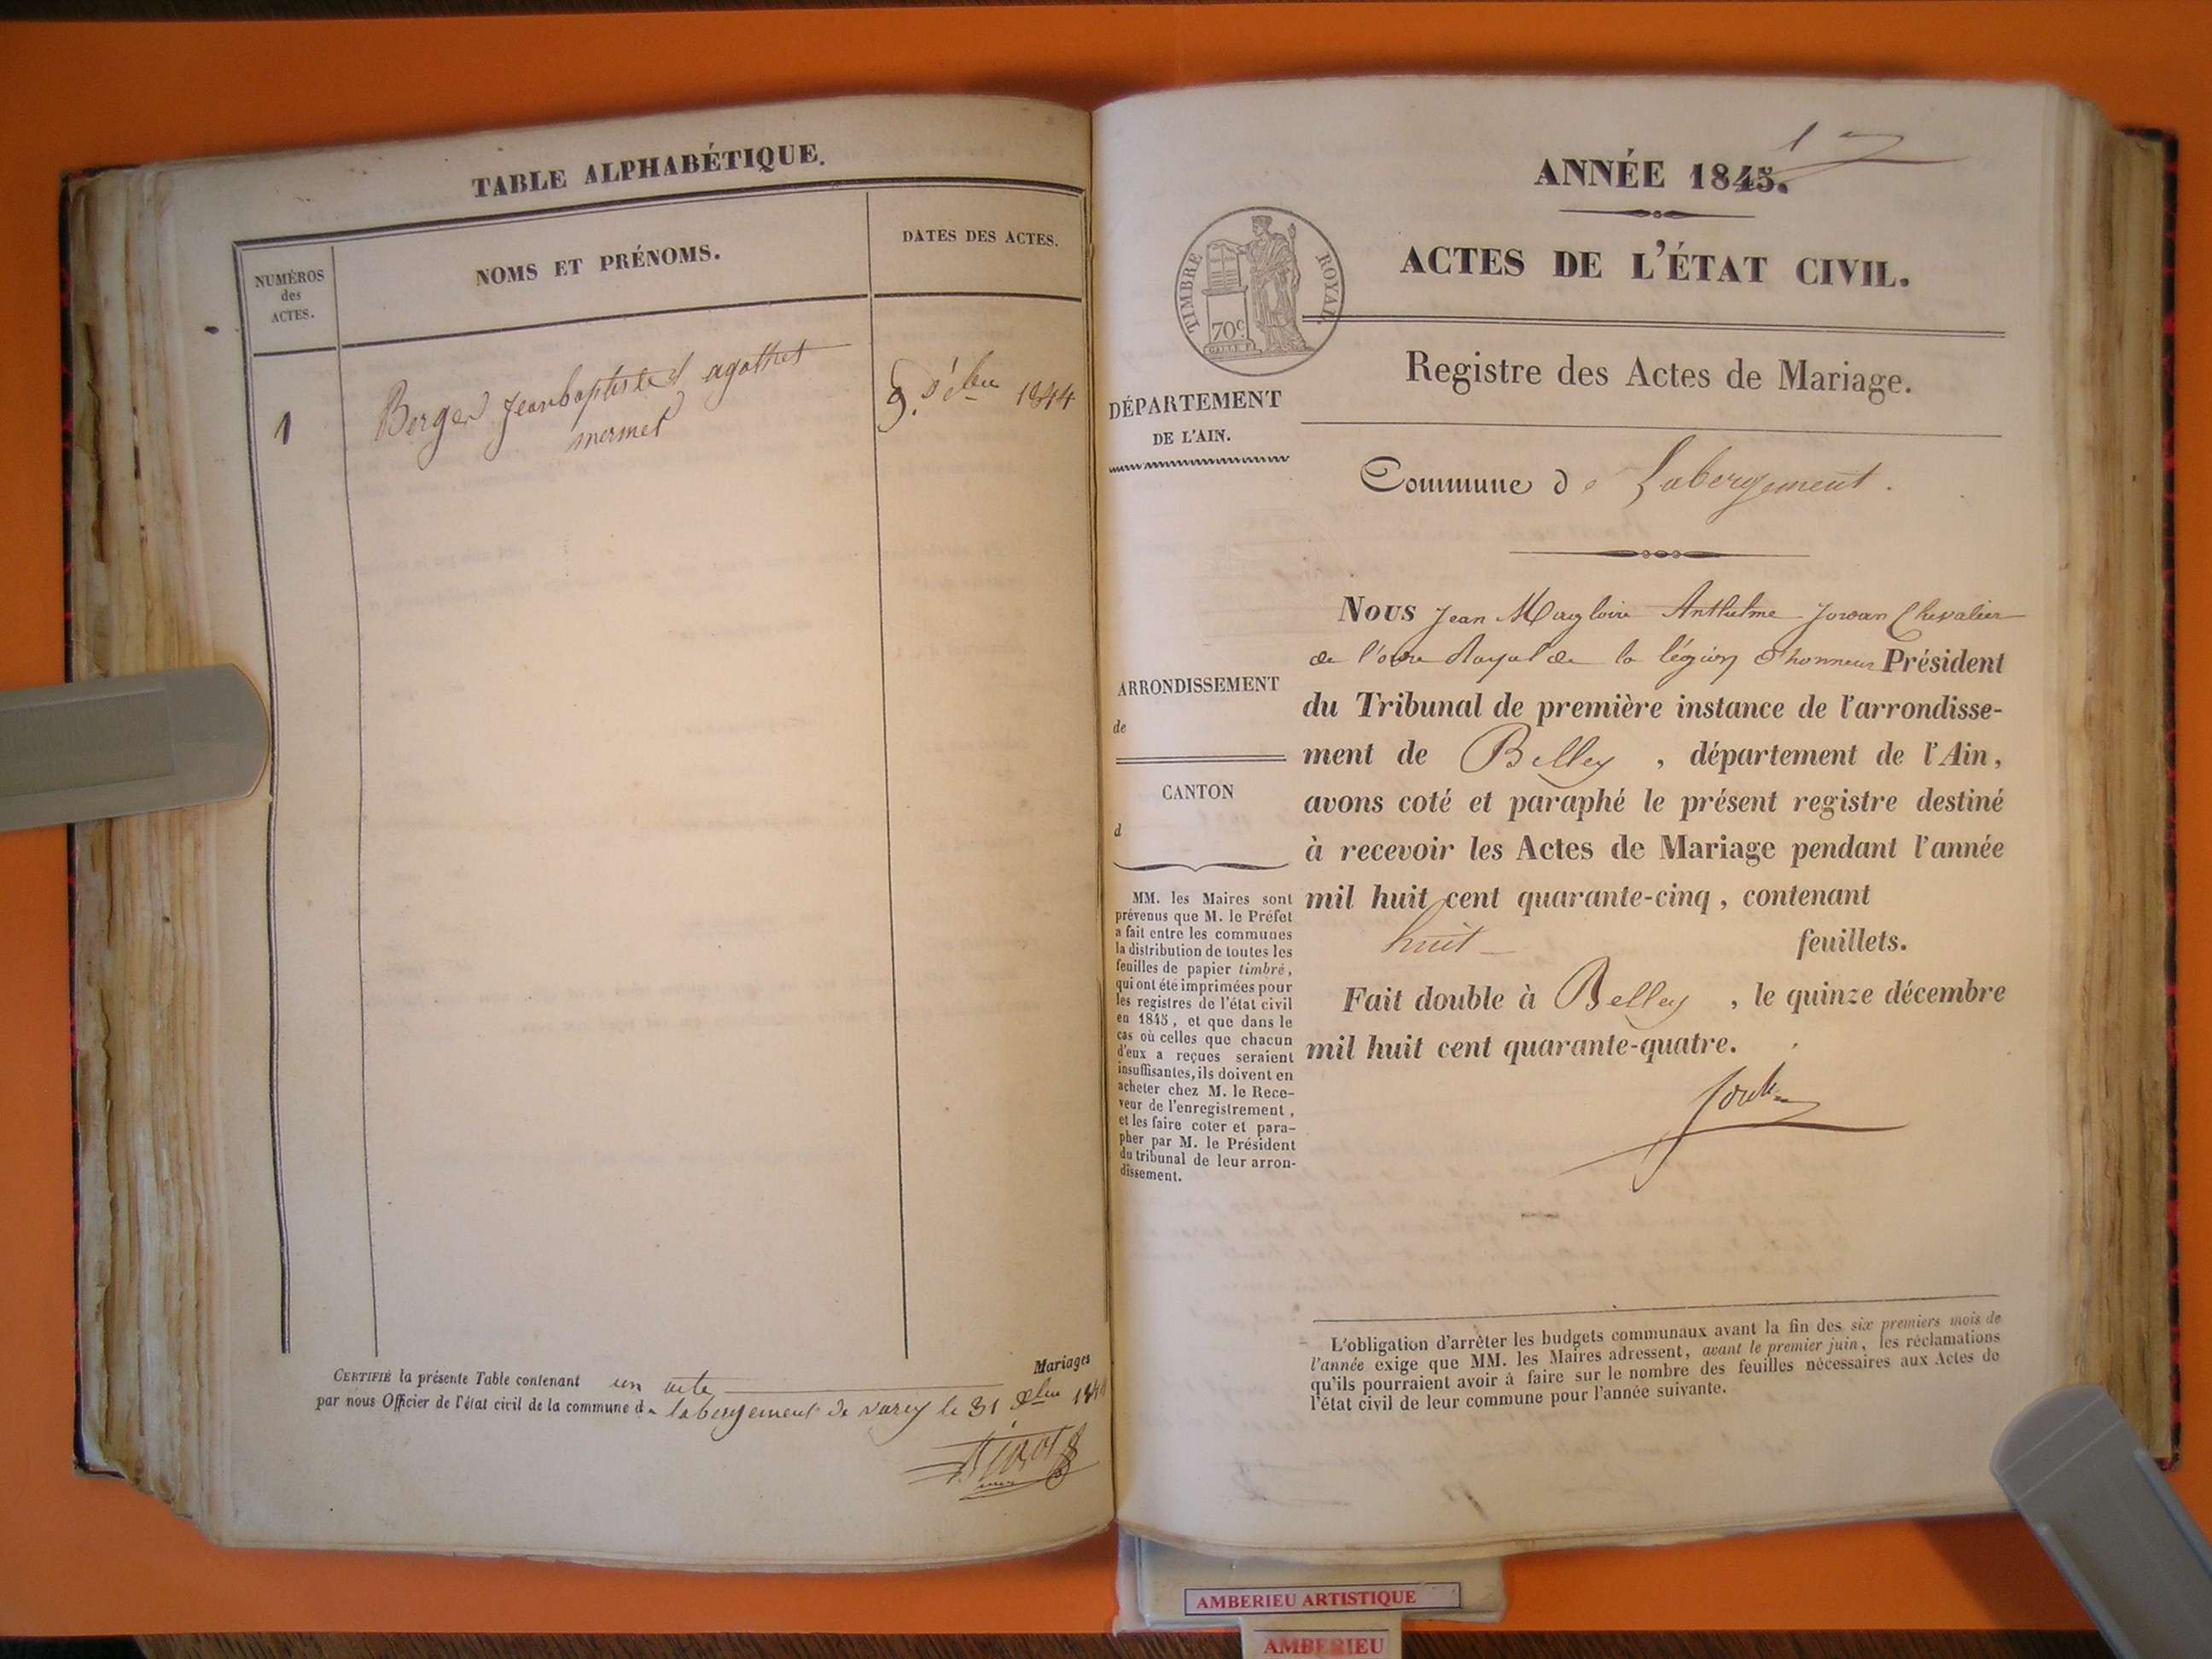 TABLE ALPHABÉTIQUE.
NUMÉROS
des
ACTES.
NOMS ET PRÉNOMS.
DATES DES ACTES.
1
Berger Jeanbaptiste et agathet
mermet
9. 1844
CERTIFIÉ la présente Table contenant un acte Mariages
par nous Officier de l'état civil de la commune de labergement de varey le 31
1
ANNÉE 1845.
ACTES DE L'ÉTAT CIVIL.
TIMBRE ROYAL
70c
DÉPARTEMENT
DE L'AIN.
Registre des Actes de Mariage.
Commune de Labergement.
Nous Jean Magloire Anthelme Chevalier
de l'ordre Royal de la légion d'honneur Président
du Tribunal de première instance de l'arrondisse-
ment de Belley, département de l'Ain,
avons coté et paraphé le présent registre destiné
à recevoir les Actes de Mariage pendant l'année
mil huit cent quarante-cinq, contenant
huit feuillets.
Fait double à Belley, le quinze décembre
mil huit cent quarante-quatre.
ARRONDISSEMENT
de
CANTON
d
MM. les Maires sont
prévenus que M. le Préfet
a fait entre les communes
la distribution de toutes les
feuilles de papier timbré,
qui ont été imprimées pour
les registres de l'état civil
en 1845, et que dans le
cas où celles que chacun
d'eux a reçues seraient
insuffisantes, ils doivent en
acheter chez M. le Rece-
veur de l'enregistrement,
et les faire coter et para-
pher par M. le Président
du tribunal de leur arron-
dissement.
L'obligation d'arrêter les budgets communaux avant la fin des six premiers mois de
l'année exige que MM. les Maires adressent, avant le premier juin, les réclamations
qu'ils pourraient avoir à faire sur le nombre des feuilles nécessaires aux Actes de
l'état civil de leur commune pour l'année suivante.
AMBERIEU ARTISTIQUE
AMBERIEU